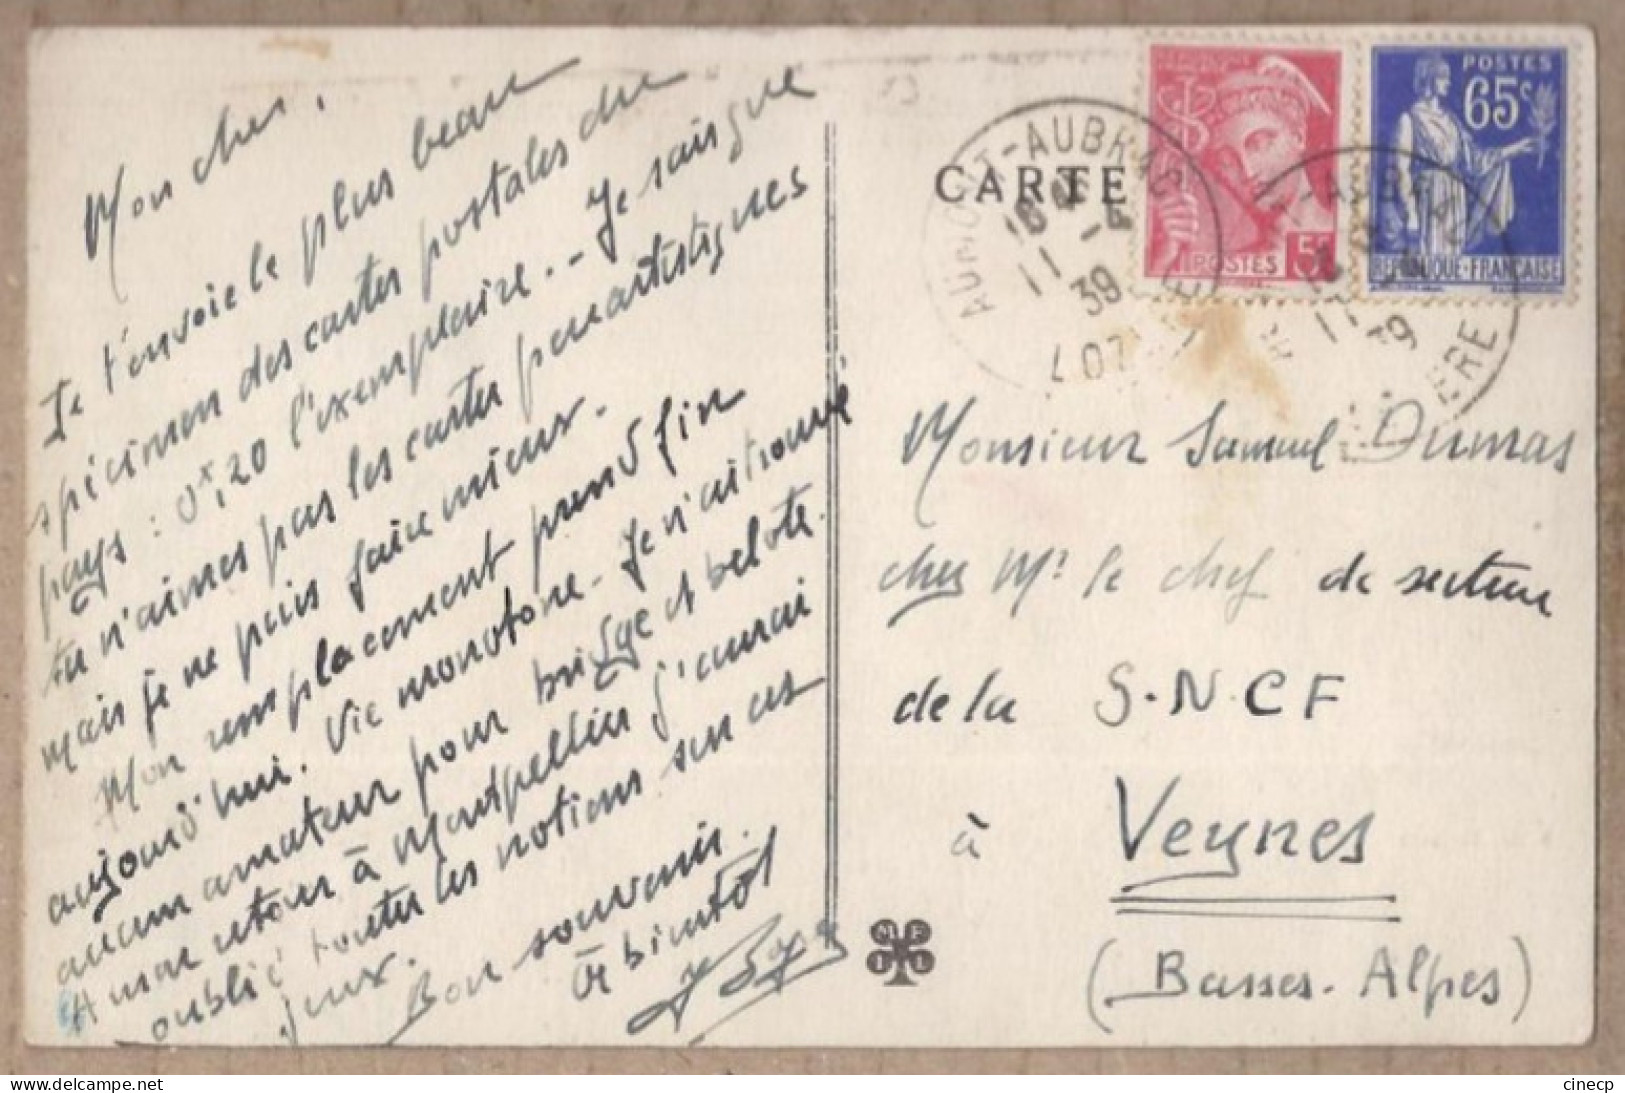 Mon cher,
Je t'envoie le plus beau
spécimen des cartes postales du
pays : 0f,20 l'exemplaire. - Je sais que
tu n'aimes pas les cartes peu artistiques
mais je ne puis faire mieux.
Mon remplacement prend fin
aujourd'hui. Vie monotone. Je n'ai trouvé
aucun amateur pour bridge et belote.
A mon retour à Montpellier j'aurai
oublié toutes les notions sur ces
jeux.
Bon souvenir.
A bientôt
CARTE
POSTES
5c
POSTES
65c
REPUBLIQUE-FRANÇAISE
AUMONT-AUBRAC
16
11 -
39
LOZERE
39
LOZERE
Monsieur Samuel Dumas
chez Mr le chef de secteur
de la S.N.C F
à Veynes
(Basses-Alpes)
M F
I L
cinecp